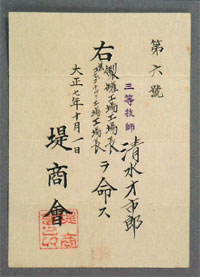 第六號
三等技師
清水才市郎
製罐工場工場長
右
工場工場長
ヲ命ス
大正七年十月一日
堤商會